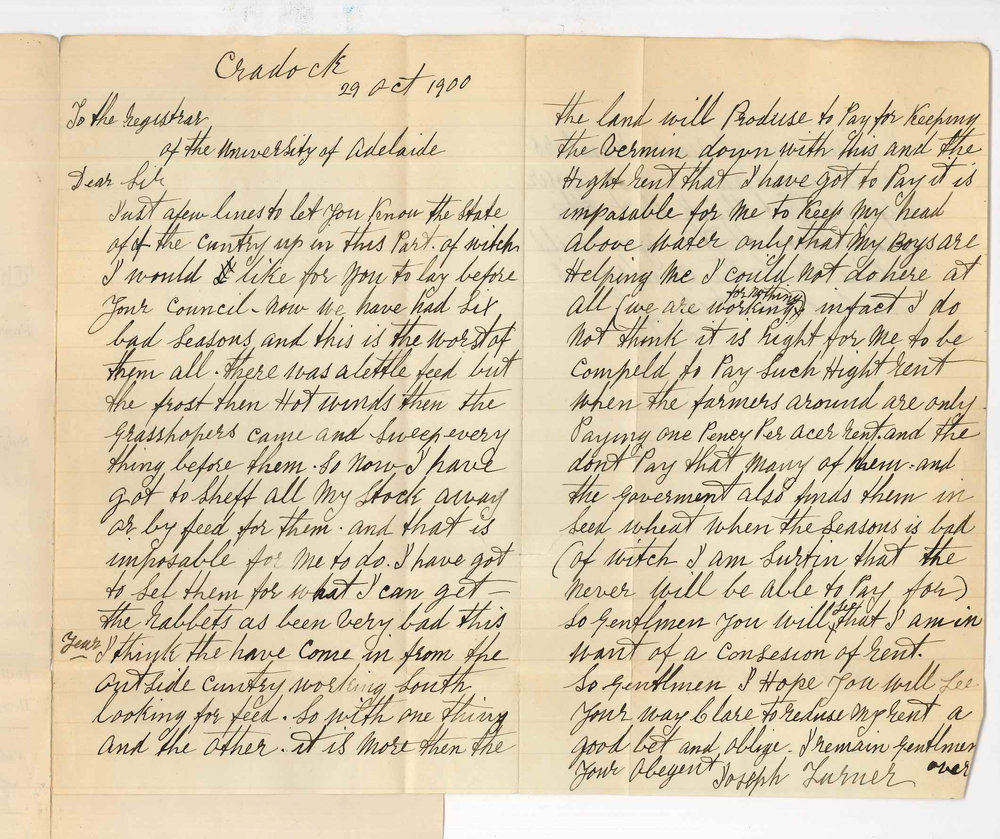 Cradock
29 Oct 1900
To the Registrar
of the University of Adelaide
Dear Sir
Just afew lines to let You Know the State
off the Cuntry up in this Part. of witch
I would like for You to lay before
Your Council - now we have had Six
bad Seasons, and this is the worst of
them all. there was a lettle feed but
the frost then Hot winds then the
Grasshopers came and Sweep every
thing before them. So Now I have
got to Sheft all My Stock away
or by feed for them. and that is
imposable for Me to do. I have got
to Sel them for what I can get -
the Rabbets as been Very bad this
Year I think the have Come in from the
outside Cuntry working South
looking for feed. So with one thing
and the other. it is More then the
the land will Produse to Pay for Keeping
the Vermun down with this and the
Hight Rent that I have got to Pay it is
imposable for Me to Keep My head
above water only that My Boys are
Helping Me I could Not do here at
all (we are working for nothing) infact I do
Not think it is right for Me to be
Compeld to Pay Such Hight Rent
when the farmers around are only
Paying one Pency Per acer Rent. and the
dont Pay that Many of them. and
the Goverment also finds them in
Seed wheat when the Seasons is bad
(of witch I am Surtin that the
Never will be able to Pay for)
So Gentlmen You will See that I am in
want of a Consesion of Rent.
So Gentlmen I Hope You will See
Your way Clare to Reduse My Rent a
good bet and oblige - I remain Gentlmen
Your Obegent Joseph Turner over